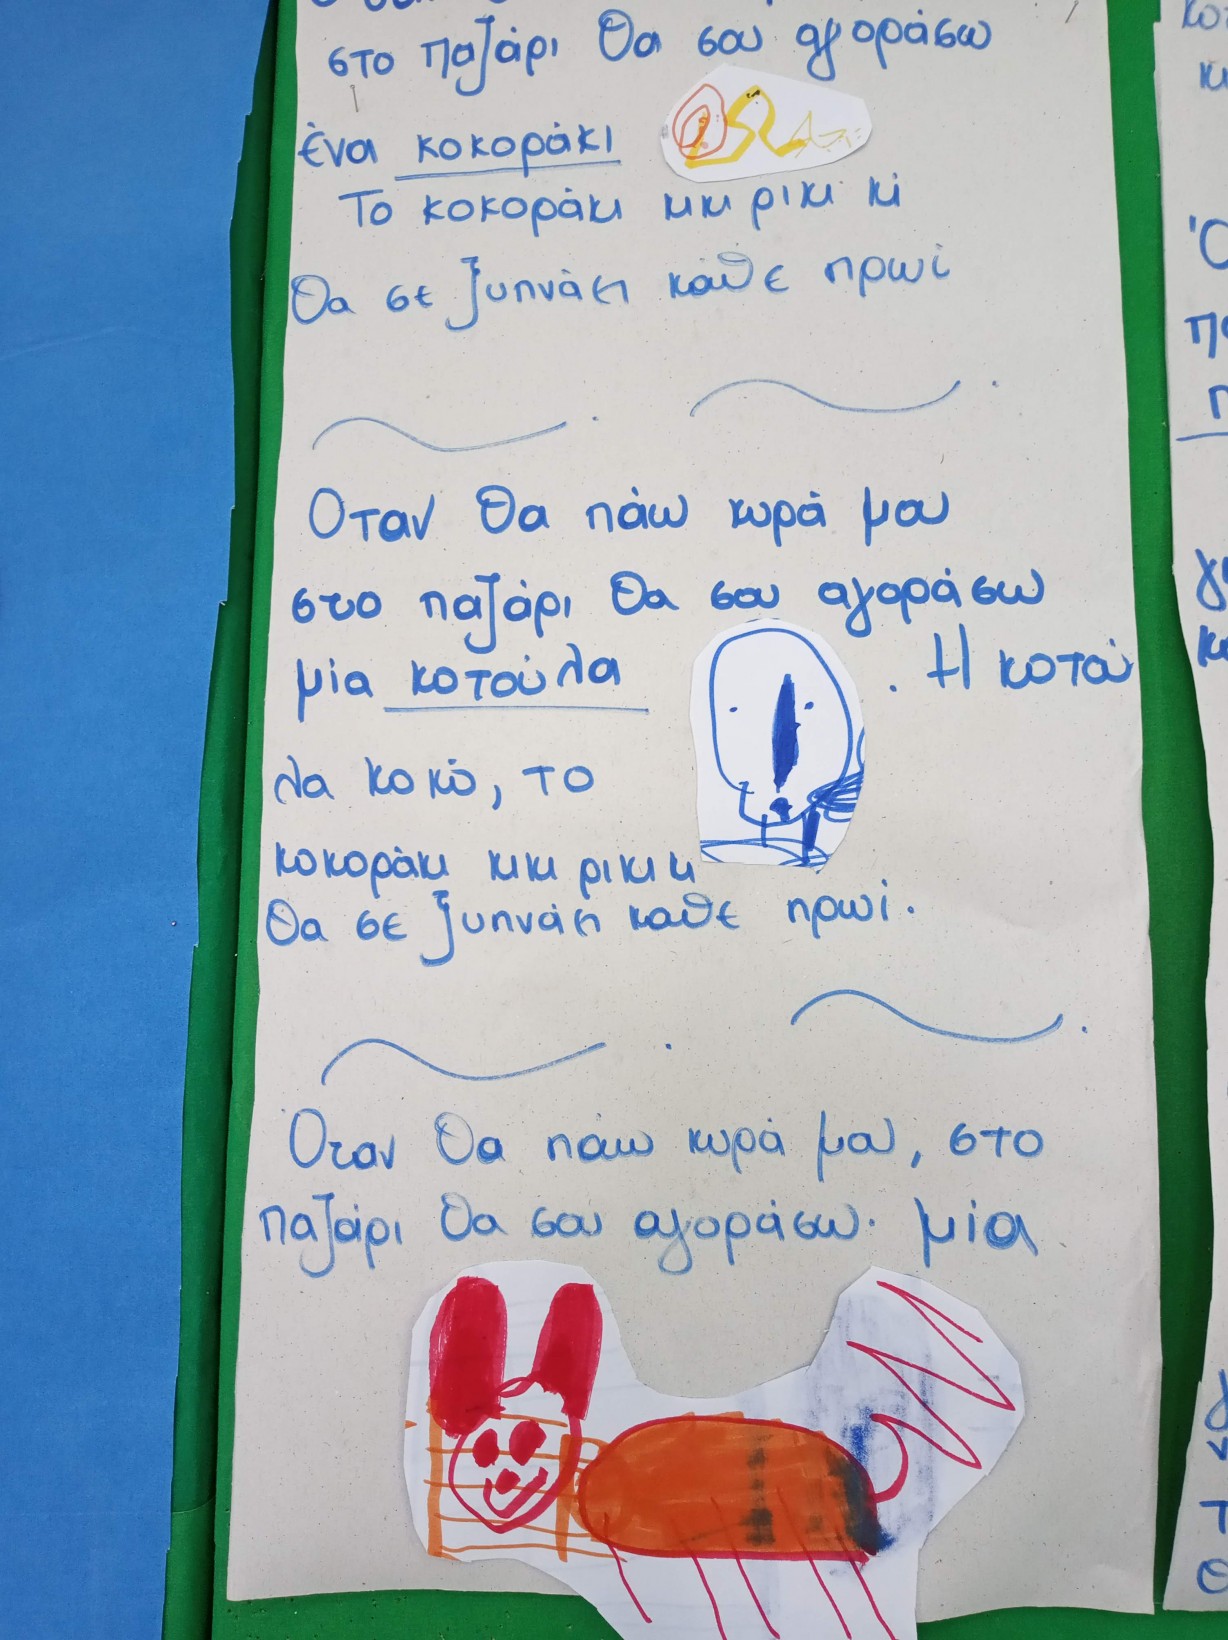 στο παζάρι θα σου αγοράσω
ένα κοκοράκι
Το κοκοράκι κικι ρικι κί
θα σε ξυπνάει κάθε πρωί
Οταν θα πάω κυρά μου
στο παζάρι θα σου αγοράσω
μία κοτούλα . Η κοτού
λα κο κό, το
κοκοράκι κικι ρικι κι
θα σε ξυπνάει καθε πρωί.
Οταν θα πάω κυρά μου, στο
παζάρι θα σου αγοράσω. μία